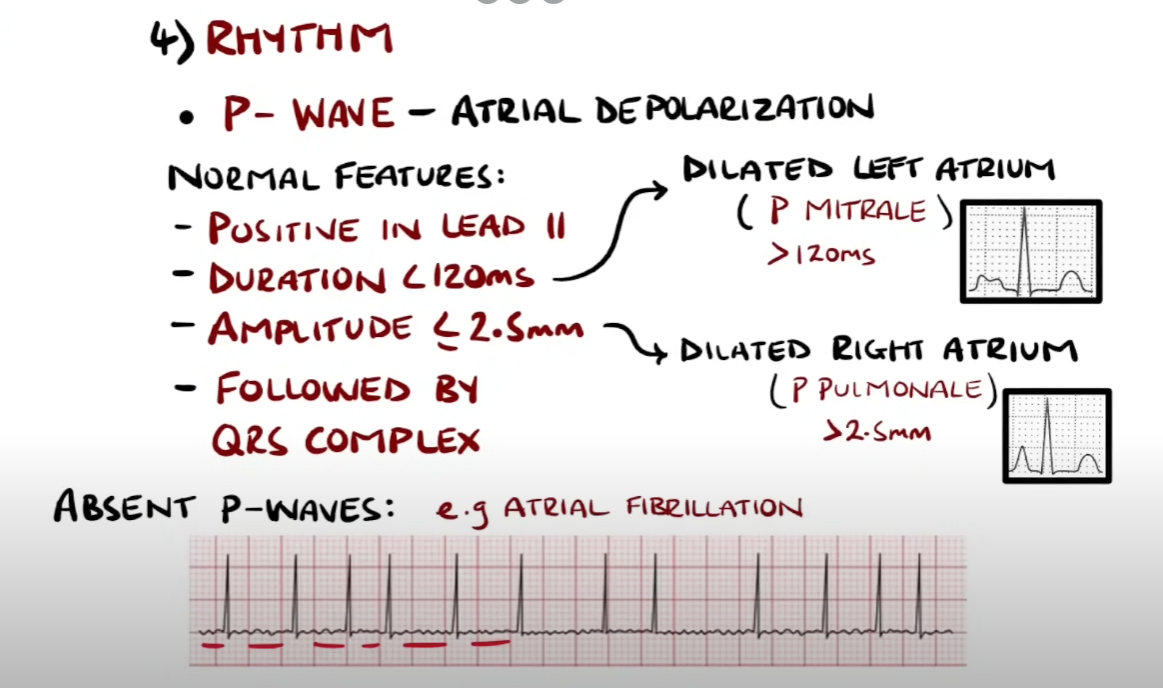 4) RHYTHM
• P- WAVE – ATRIAL DEPOLARIZATION
NORMAL FEATURES:
- POSITIVE IN LEAD II
- DURATION <120ms
- AMPLITUDE ≤ 2.5mm
- FOLLOWED BY
QRS COMPLEX
DILATED LEFT ATRIUM
( P MITRALE )
>120ms
DILATED RIGHT ATRIUM
( P PULMONALE )
>2.5mm
ABSENT P-WAVES: e.g ATRIAL FIBRILLATION